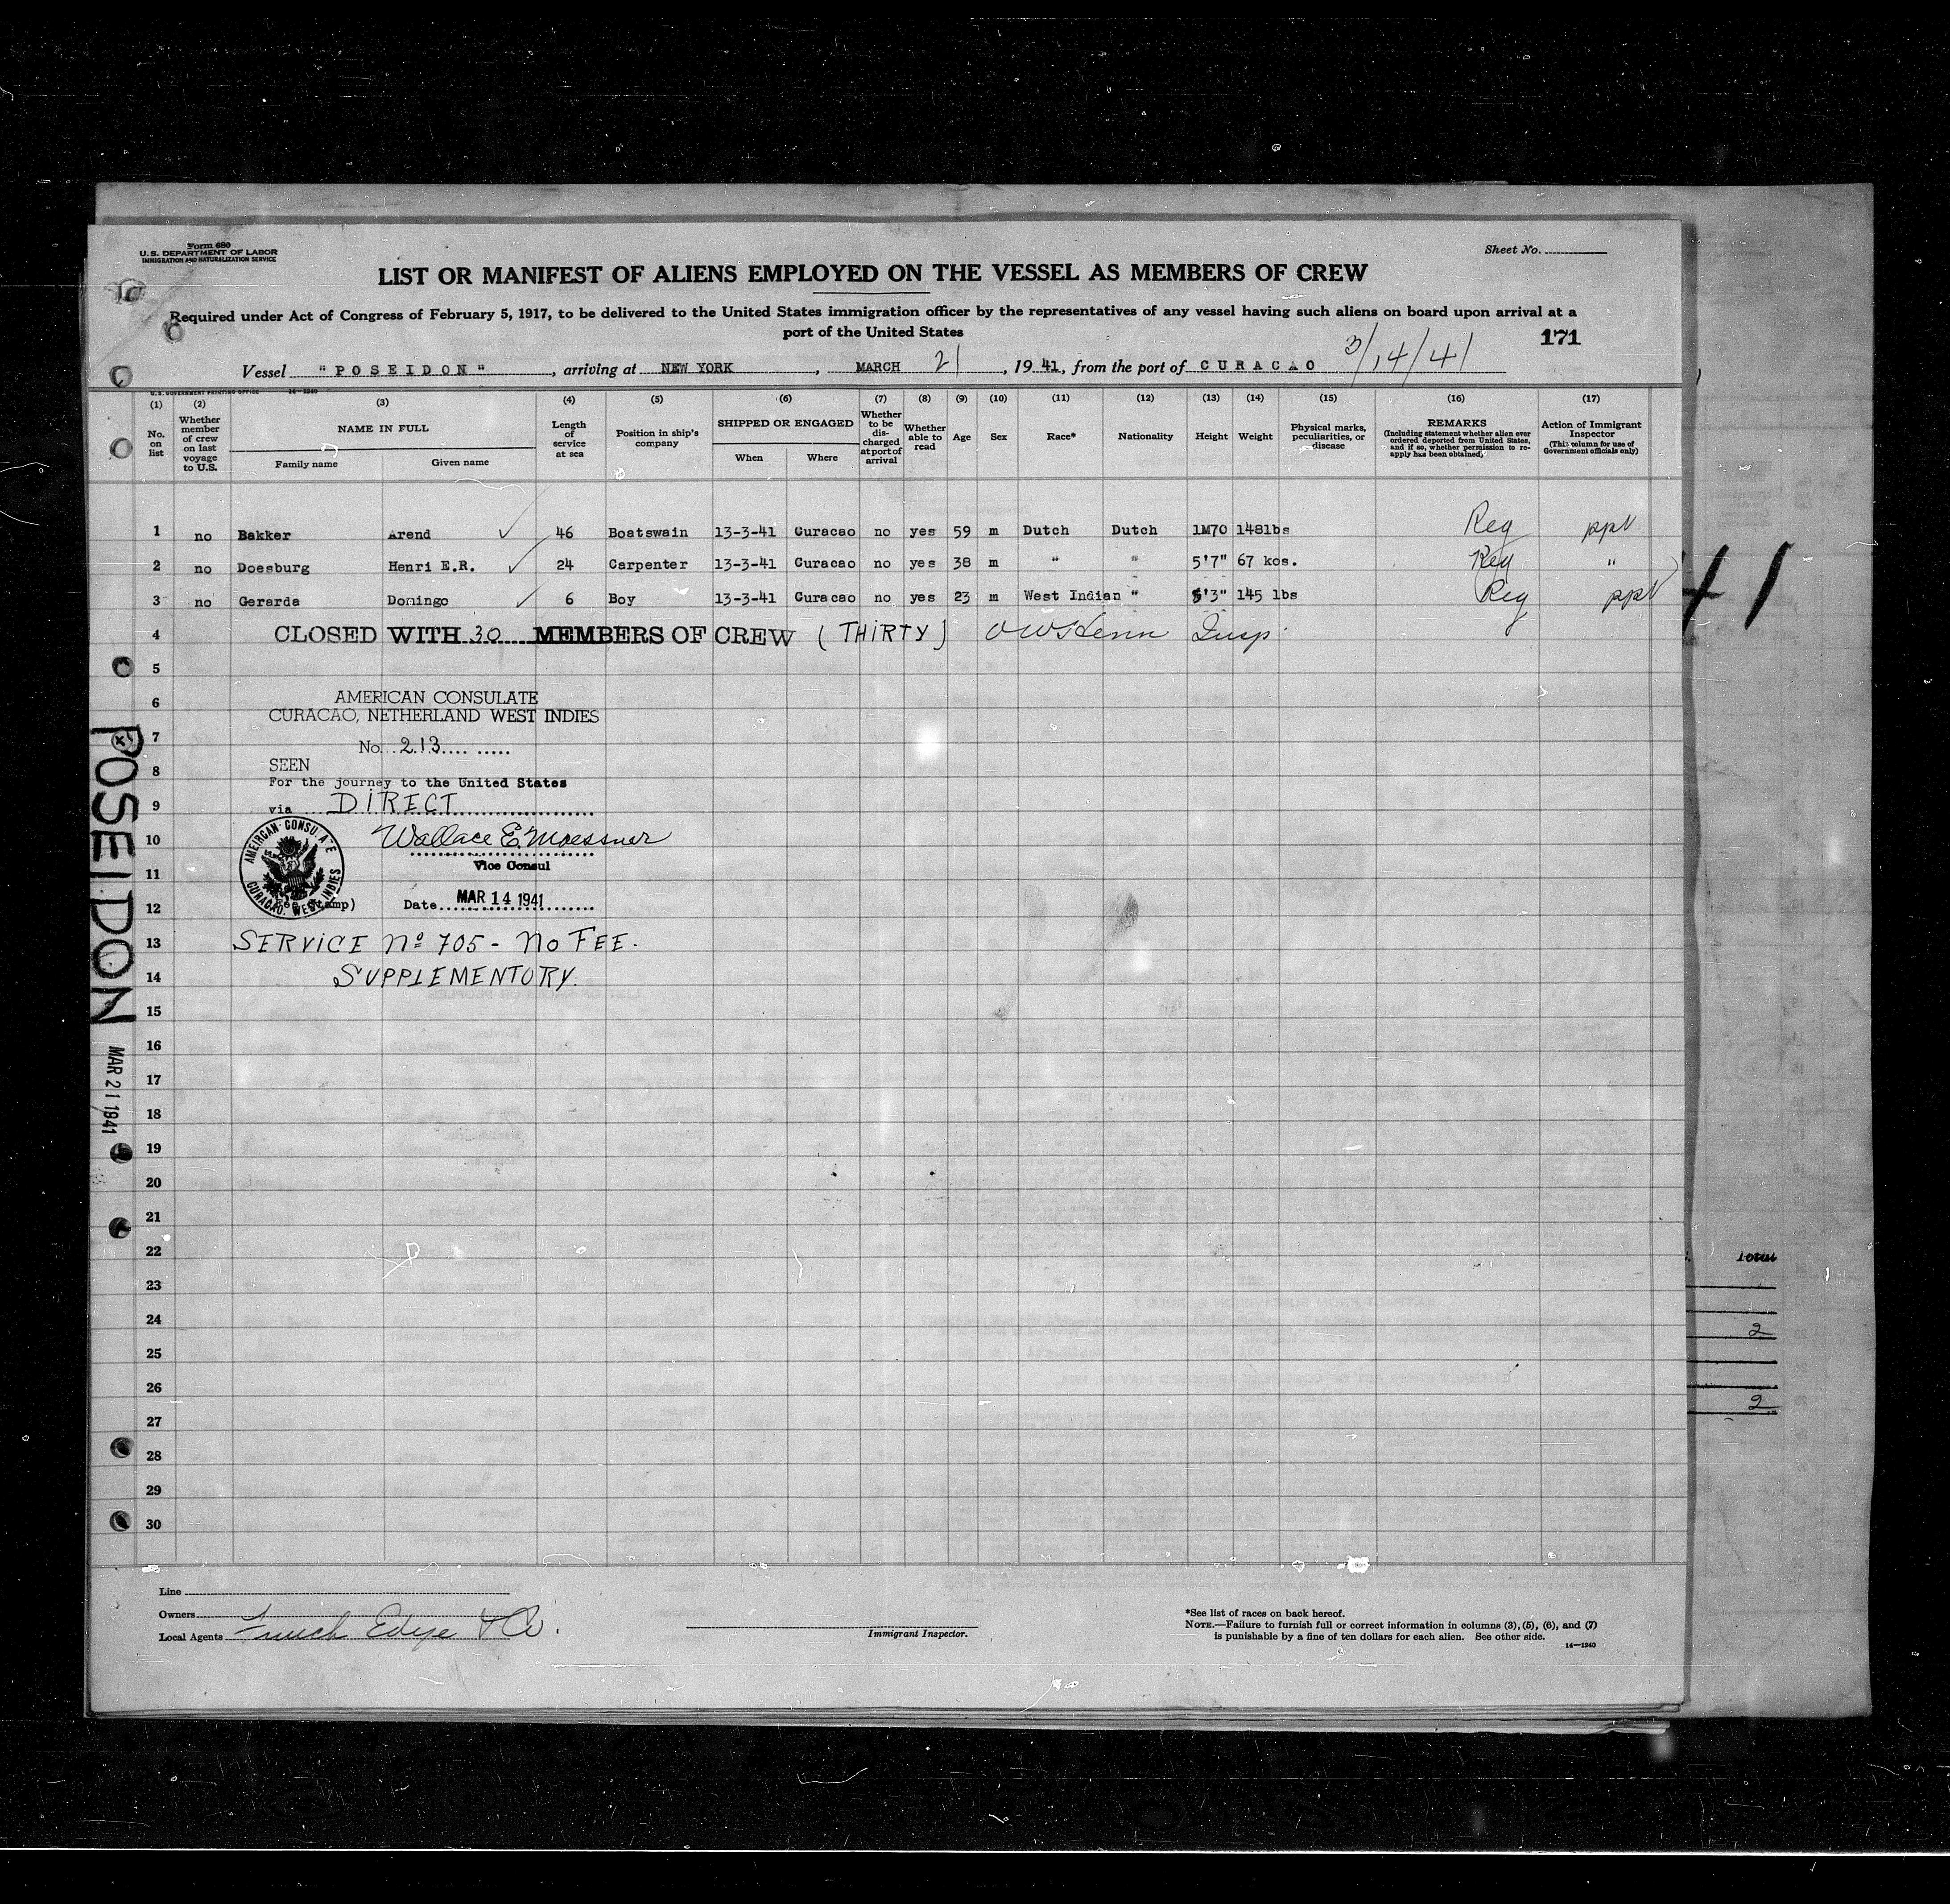 Form 680
U.S. DEPARTMENT OF LABOR
IMMIGRATION AND NATURALIZATION SERVICE
Sheet No.
LIST OR MANIFEST OF ALIENS EMPLOYED ON THE VESSEL AS MEMBERS OF CREW
Required under Act of Congress of February 5, 1917, to be delivered to the United States immigration officer by the representatives of any vessel having such aliens on board upon arrival at a
port of the United States
171
Vessel "POSEIDON", arriving at NEW YORK, MARCH 21, 1941, from the port of CURACAO 3/14/41
U.S. GOVERNMENT PRINTING OFFICE 14—1240
(1) (2) (3) (4) (5) (6) (7) (8) (9) (10) (11) (12) (13) (14) (15) (16) (17)
No. on list
Whether member of crew on last voyage to U.S.
NAME IN FULL
Family name Given name
Length of service at sea
Position in ship's company
SHIPPED OR ENGAGED
When Where
Whether to be discharged at port of arrival
Whether able to read
Age
Sex
Race*
Nationality
Height
Weight
Physical marks, peculiarities, or disease
REMARKS
(Including statement whether alien ever ordered deported from United States, and if so, whether permission to reapply has been obtained)
Action of Immigrant Inspector
(This column for use of Government officials only)
1 no Bakker Arend 46 Boatswain 13-3-41 Curacao no yes 59 m Dutch Dutch 1M70 148lbs Reg ppt
2 no Doesburg Henri E.R. 24 Carpenter 13-3-41 Curacao no yes 38 m " " 5'7" 67 kos. Reg "
3 no Gerarda Domingo 6 Boy 13-3-41 Curacao no yes 23 m West Indian " 5'3" 145 lbs Reg ppt
4 CLOSED WITH 30 MEMBERS OF CREW (THIRTY) Insp.
5
6 AMERICAN CONSULATE
CURACAO, NETHERLAND WEST INDIES
7 No. 213
8 SEEN
For the journey to the United States
9 via DIRECT
10 Wallace E. Moessner
11 Vice Consul
AMERICAN CONSULATE
CURACAO, WEST INDIES
(Fee Stamp)
12 Date MAR 14 1941
13 SERVICE No 705 - NO FEE.
14 SUPPLEMENTORY.
15
16
17
18
19
20
21
22
23
24
25
26
27
28
29
30
POSEIDON
MAR 21 1941
41
Total
2
2
Line
Owners
Local Agents Funch Edye & Co.
Immigrant Inspector.
*See list of races on back hereof.
NOTE.—Failure to furnish full or correct information in columns (3), (5), (6), and (7)
is punishable by a fine of ten dollars for each alien. See other side.
14—1240